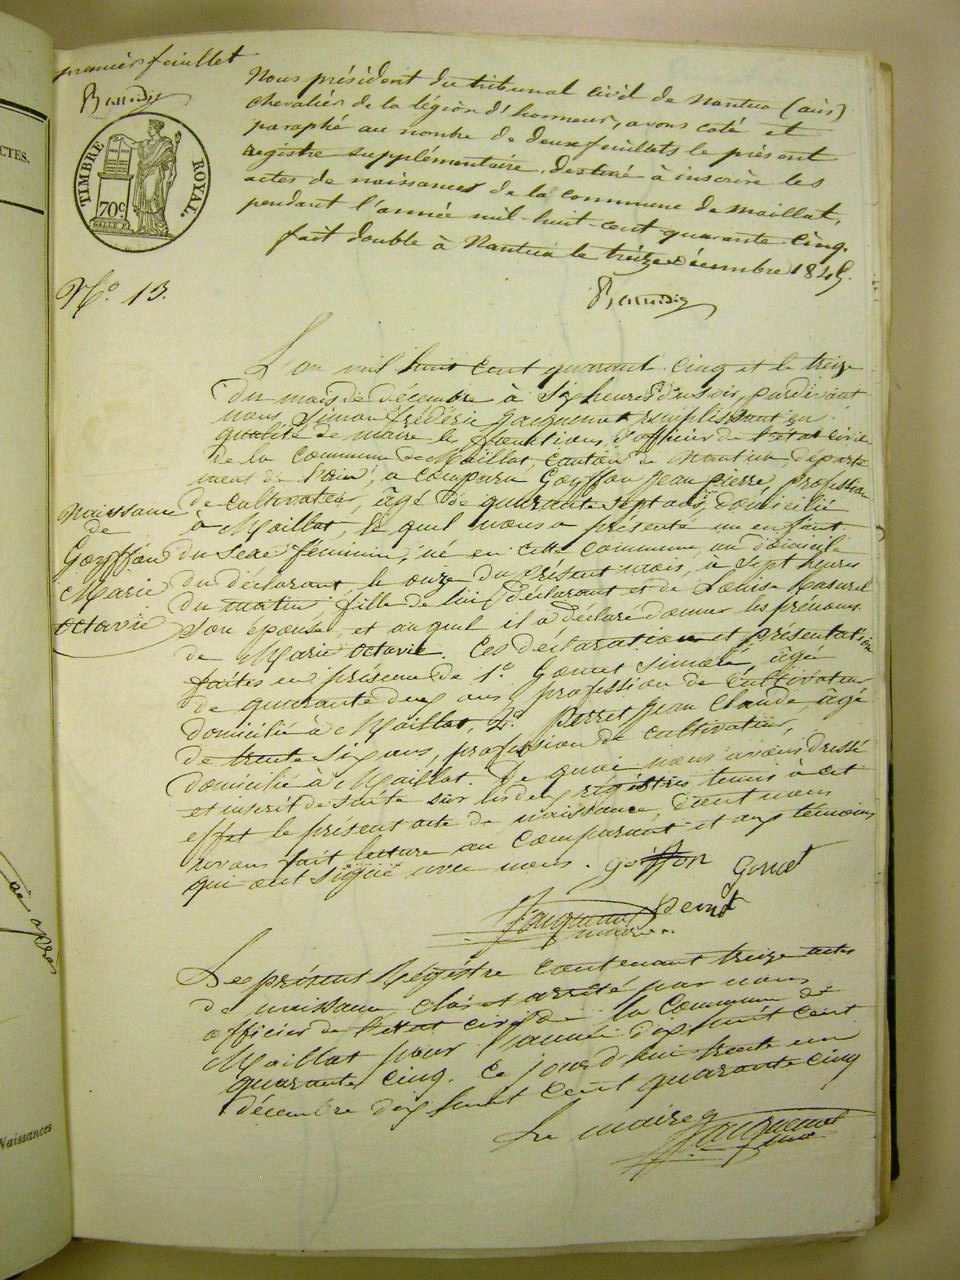 premier feuillet
TIMBRE ROYAL.
70c
CTES.
Nous président du tribunal civil de Nantua (ain)
chevalier de la légion d'honneur, avons coté et
paraphé au nombre de deux feuillets le présent
registre supplémentaire, destiné à inscrire les
actes de naissances de la commune de Maillat,
pendant l'année mil-huit-cent quarante cinq.
fait double à Nantua le treize décembre 1845.
No. 13.
L'an mil huit cent quarant cinq et le treize
du mois de décembre à six heures du soir, pardevant
nous Simon Frédéric Jacquemet remplissant en
qualité de maire le fonctions d'officier de l'état civil
de la commune de Maillat, canton de Nantua, départe
ment de l'ain, a comparu Goyffon Jean pierre, profession
de cultivateur, âgé de quarante sept ans, domicilié
à Maillat, le quel nous a présenté un enfant
du sexe féminin, né en cette commune, au domicile
du déclarant le onze du présent mois, à sept heures
du matin fille de lui déclarant et de Louise Masurel
son épouse, et auquel il a déclaré donner les prénoms
de Marie octavie. Ces déclaration et présentation
faites en présence de 1o. Gonet Simon, âgé
de quarante deux ans, profession de cultivateur
domicilié à Maillat, 2o. Perret Jean Claude, âgé
de trente six ans, profession de cultivateur,
domicilié à Maillat. De quoi nous avons dressé
et inscrit de suite sur les deux régistres tenus à cet
effet le présent acte de naissance, dont nous
avons fait lecture au comparant et aux témoins
qui ont signé avec nous. goiffon Gonet
Jacquemet Perret
maire
Naissance
de
Goyffon
Marie
octavie
Le présent Régistre contenant treize actes
de naissance, clos et arrêté par nous
officier de l'état civil de la Commune de
Maillat pour l'année dix huit cent
quarante cinq. Ce jourd'hui trente un
décembre dix huit cent quarante cinq
Le maire
Jacquemet
Naissances